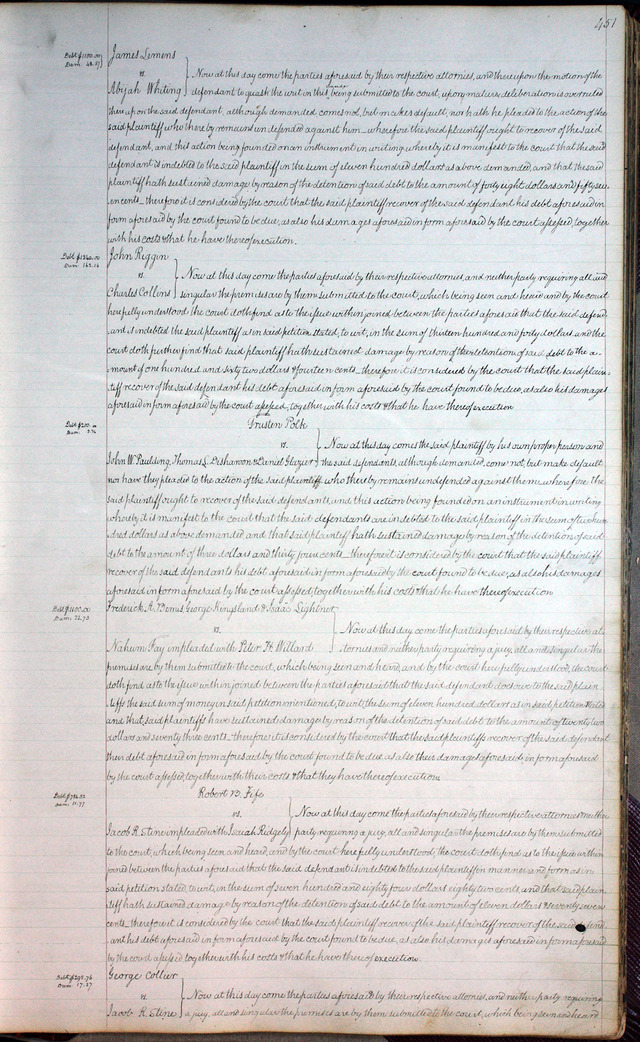 451
Debt $1100.00
Dam: 48.57
James Lemens
vs.
Abijah Whiting
Now at this day come the parties aforesaid by their respective attornies, and thereupon the motion of the
defendant to quash the writ in this cause being submitted to the court, upon mature deliberation is overruled
thereupon the said defendant, although demanded comes not, but makes default, nor hath he pleaded to the action of the
said plaintiff who thereby remains undefended against him, wherefore the said plaintiff ought to recover of the said
defendant, and this action being founded on an instrument in writing whereby it is manifest to the court that the said
defendant is indebted to the said plaintiff in the sum of eleven hundred dollars as above demanded, and that the said
plaintiff hath sustained damage by reason of the detention of said debt to the amount of forty eight dollars and fifty sev
en cents_ therefore it is considered by the court that the said plaintiff recover of the said defendant his debt aforesaid in
form aforesaid by the court found to be due, as also his damages aforesaid in form aforesaid by the court assessed, together
with his costs & that he have thereof execution.
Debt $1340.00
Dam: 162.14
John Riggin
vs.
Charles Collins
Now at this day come the parties aforesaid by their respective attornies, and neither party requiring all and
singular the premises are by them submitted to the court, which being seen and heard and by the court
here fully understood the court doth find as to the issue within joined between the parties aforesaid that the said defend
ant is indebted the said plaintiff as in said petition stated, to wit, in the sum of thirteen hundred and forty dollars and the
court doth further find that said plaintiff hath sustained damage by reason of the detention of said debt to the a-
mount of one hundred and sixty two dollars & fourteen cents_ therefore it is considered by the court that the said plain-
tiff recover of the said defendant his debt aforesaid in form aforesaid by the court found to be due, as also his damages
aforesaid in form aforesaid by the court assessed, together with his costs & that he have thereof execution
Debt $200.00
Dam: 3.34
Trusten Polk
vs.
John W. Paulding, Thomas L. Disharoon & Daniel Glazier
Now at this day comes the said plaintiff by his own proper person and
the said defendants, although demanded, come not, but make default
nor have they pleaded to the action of the said plaintiff who thereby remains undefended against them, wherefore the
said plaintiff ought to recover of the said defendants, and this action being founded on an instrument in writing
whereby it is manifest to the court that the said defendants are indebted to the said plaintiff in the sum of two hun
dred dollars as above demanded and that said plaintiff hath sustained damage by reason of the detention of said
debt to the amount of three dollars and thirty four cents_ therefore it is considered by the court that the said plaintiff
recover of the said defendants his debt aforesaid in form aforesaid by the court found to be due, as also his damages
aforesaid in form aforesaid by the court assessed, together with his costs & that he have thereof execution
Debt $1100.00
Dam: 22.73
Frederick A. Bemis George Kingsland & Isaac Lightner
vs.
Nahum Fay impleaded with Peter H. Willard
Now at this day come the parties aforesaid by their respective at-
tornies and neither party requiring a jury, all and singular the
premises are by them submitted to the court, which being seen and heard, and by the court here fully understood, the court
doth find as to the issue within joined between the parties aforesaid that the said defendant does owe to the said plain
tiffs the said sum of money in said petition mentioned, to wit, the sum of eleven hundred dollars as in said petition stated
and that said plaintiffs have sustained damages by reason of the detention of said debt to the amount of twenty two
dollars and seventy three cents_ therefore it is considered by the court that the said plaintiffs recover of the said defendant
their debt aforesaid in form aforesaid by the court found to be due as also their damages aforesaid in form aforesaid
by the court assessed, together with their costs & that they have thereof execution
Debt $784.82
Dam: 11.77
Robert B. Fife
vs.
Jacob R. Stine impleaded with Isaiah Ridgely
Now at this day come the parties aforesaid by their respective attornies & neither
party requiring a jury, all and singular the premises are by them submitted
to the court, which being seen and heard, and by the court here fully understood, the court doth find as to the issue within
joined between the parties aforesaid that the said defendant is indebted to the said plaintiff in manner and form as in
said petition stated, to wit, in the sum of seven hundred and eighty four dollars eighty two cents, and that said plain
tiff hath sustained damage by reason of the detention of said debt to the amount of eleven dollars & seventy seven
cents_ therefore it is considered by the court that the said plaintiff recover of the said plaintiff recover of the said defend
ant his debt aforesaid in form aforesaid by the court found to be due, as also his damages aforesaid in form aforesaid
by the court assessed together with his costs & that he have thereof execution.
George Collier
vs.
Jacob R. Stine
Now at this day come the parties aforesaid by their respective attornies, and neither party requiring
a jury, all and singular the premises are by them submitted to the court, which being seen and heard